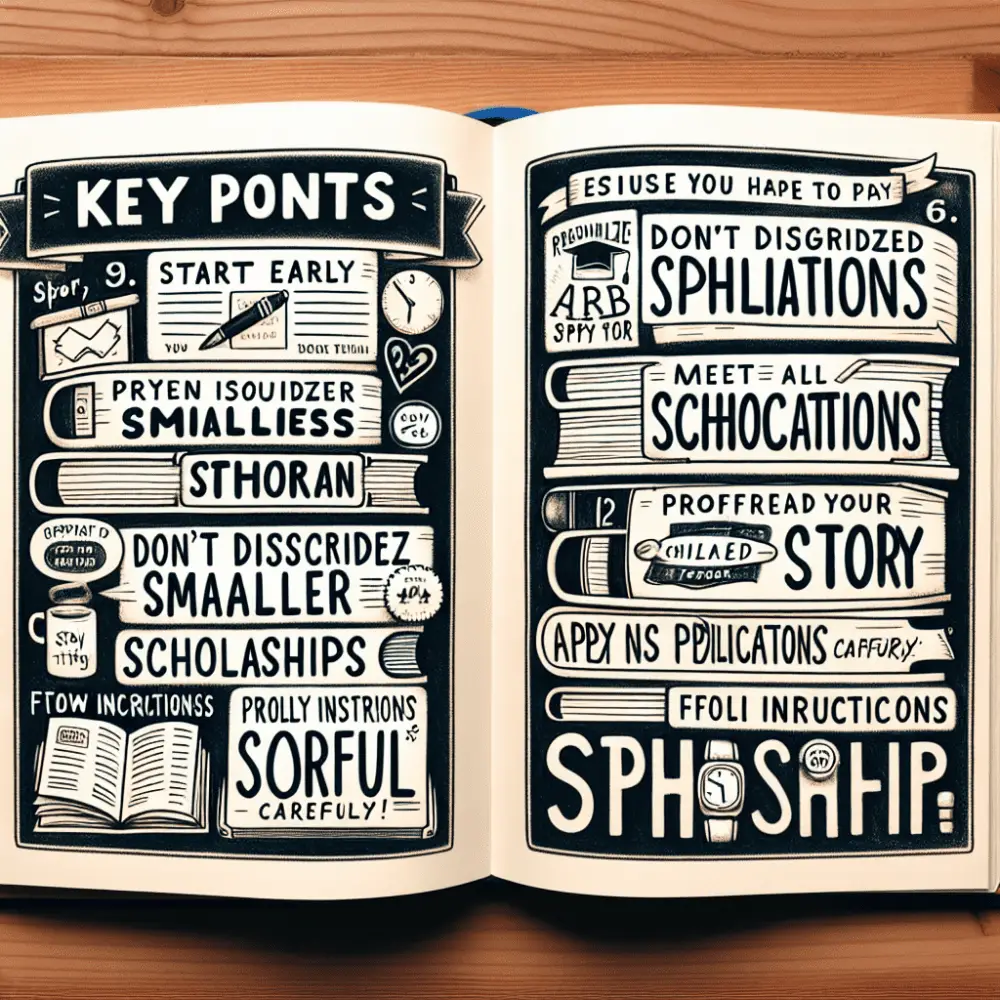 KEY PONTS
9.
START EARLY
YOU
PRYEN ISOUIDZER
SMIALLIESS
STHORAN
DON'T DISSCRIDEZ
SMAALLER
SCHOLASHIPS
STAY
FTOW INCRCTIONSS
PROLLY INSTRIONS
SORFUL
CAREFULY!
ESIUSE YOU HAPE TO PAY
6.
ARB
SPPY TOR
DON'T DISGRIDZED
SPHLIATIONS
MEET ALL
SCHHOCATTIONS
12
PROFFREAD YOUR
CHILAED
STORY
APPLY NS PBLICATONS CAFFURY.
FFOLI INRUCTICONS
SPH SHHIP.